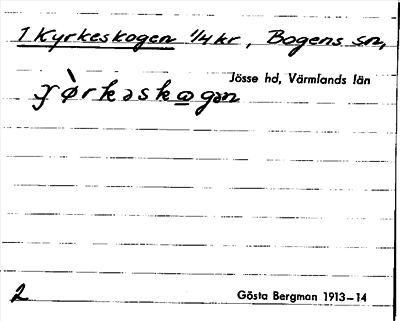 1 Kyrkeskogen 1/4 kr, Bogens sn,
Jösse hd, Värmlands län
2
Gösta Bergman 1913–14